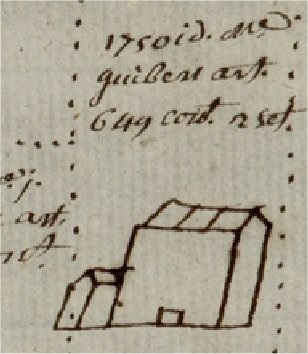 1750 id. Me
guibert art.
649 cont. 2 set.
art.